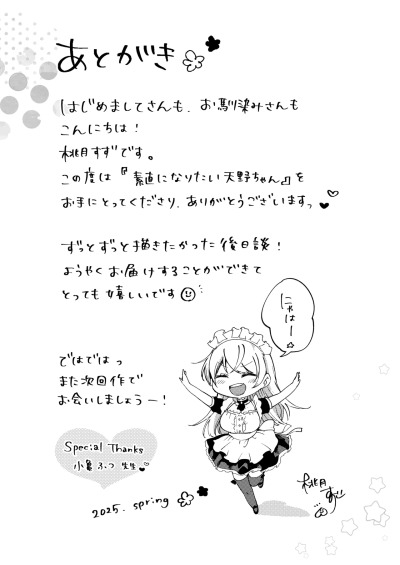 あとがき
はじめましてさんも、お馴染みさんも
こんにちは！
桃月すずです。
この度は『素直になりたい天野ちゃん』を
お手にとってくださり、ありがとうございますっ
ずっとずっと描きたかった後日談！
ようやくお届けすることができて
とっても嬉しいです
にゃはー！
ではではっ
また次回作で
お会いしましょうー！
Special Thanks
小亀ふつ 先生
2025. spring
桃月すず